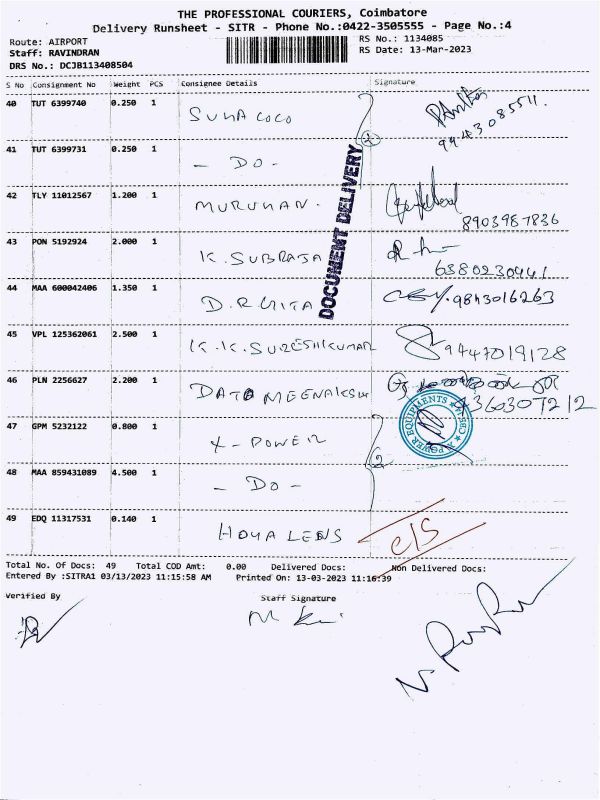 THE PROFESSIONAL COURIERS, Coimbatore
Delivery Runsheet - SITR - Phone No.:0422-3505555 - Page No.:4
Route: AIRPORT
RS No.: 1134085
Staff: RAVINDRAN
RS Date: 13-Mar-2023
DRS No.: DCJB113408504
S No Consignment No Weight PCS Consignee Details Signature
40 TUT 6399740 0.250 1 SUNA COCO 9943085511.
41 TUT 6399731 0.250 1 - DO -
42 TLY 11012567 1.200 1 MURUHAN. 8903987836
43 PON 5192924 2.000 1 K. SUBRAJA 6380230441
44 MAA 600042406 1.350 1 D.RHITA 9843016263
45 VPL 125362061 2.500 1 K.K. SURESHKUMAR 9447019128
46 PLN 2256627 2.200 1 DATO MEENAKSHI
47 GPM 5232122 0.800 1 X-POWER 2
48 MAA 859431089 4.500 1 - DO -
49 EDQ 11317531 0.140 1 HOYA LENS c/s
DOCUMENT DELIVERY
POWER EQUIPMENTS
Total No. Of Docs: 49 Total COD Amt: 0.00 Delivered Docs: Non Delivered Docs:
Entered By :SITRA1 03/13/2023 11:15:58 AM Printed On: 13-03-2023 11:16:39
Verified By Staff Signature